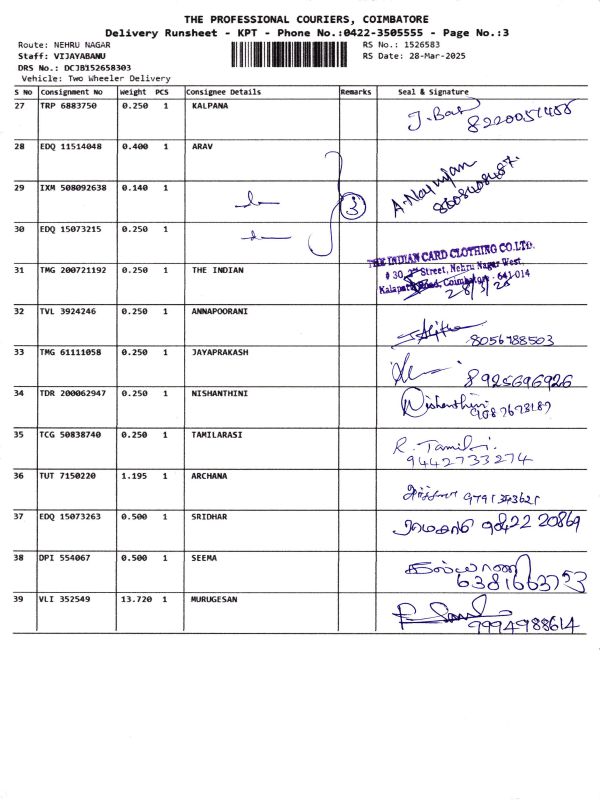 THE PROFESSIONAL COURIERS, COIMBATORE
Delivery Runsheet - KPT - Phone No.:0422-3505555 - Page No.:3
Route: NEHRU NAGAR RS No.: 1526583
Staff: VIJAYABANU RS Date: 28-Mar-2025
DRS No.: DCJB152658303
Vehicle: Two Wheeler Delivery
S No Consignment No Weight PCS Consignee Details Remarks Seal & Signature
27 TRP 6883750 0.250 1 KALPANA
28 EDQ 11514048 0.400 1 ARAV
29 IXM 508092638 0.140 1 3
30 EDQ 15073215 0.250 1
31 TMG 200721192 0.250 1 THE INDIAN THE INDIAN CARD CLOTHING CO.LTD.
# 30, 2nd Street, Nehru Nagar West,
Kalapatti Road, Coimbatore - 641 014
32 TVL 3924246 0.250 1 ANNAPOORANI
8056788503
33 TMG 61111058 0.250 1 JAYAPRAKASH
8925696926
34 TDR 200062947 0.250 1 NISHANTHINI Nishanthini
35 TCG 50838740 0.250 1 TAMILARASI R. Tamil
9442733274
36 TUT 7150220 1.195 1 ARCHANA
37 EDQ 15073263 0.500 1 SRIDHAR
38 DPI 554067 0.500 1 SEEMA
39 VLI 352549 13.720 1 MURUGESAN
9994988614